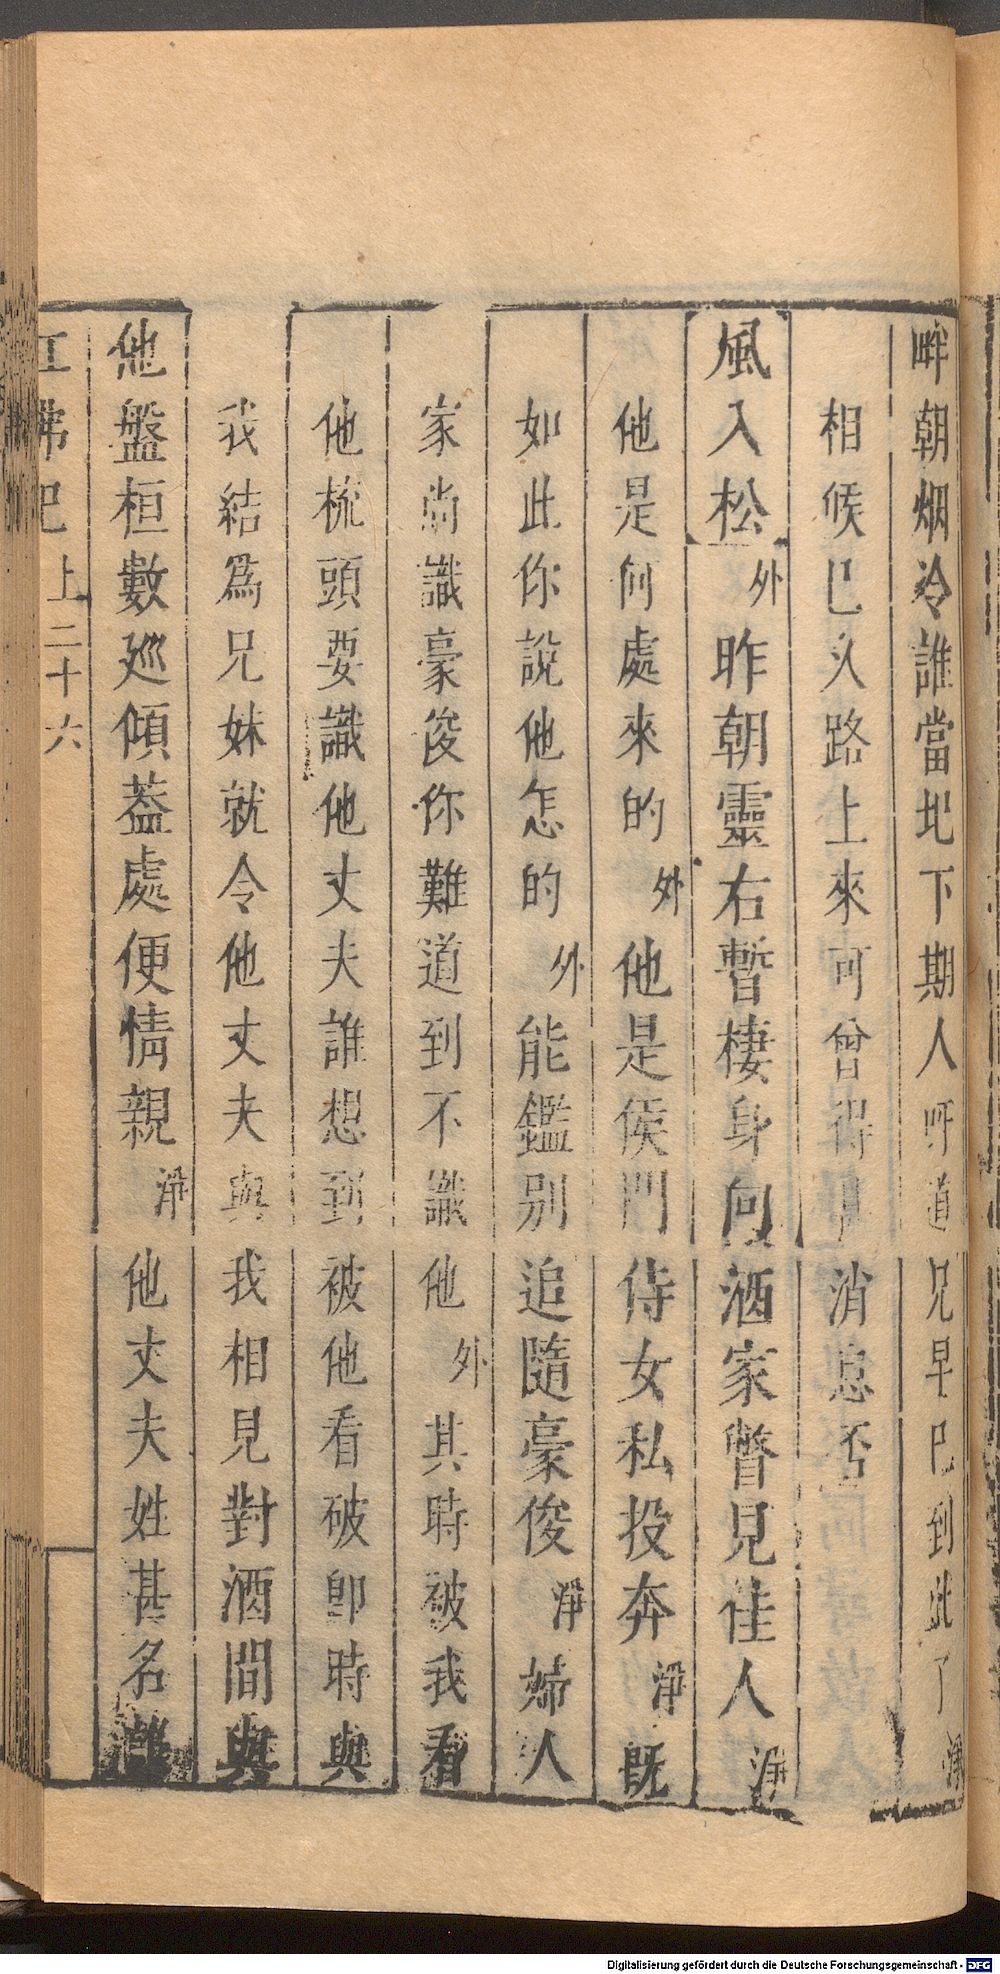 畔朝烟冷誰當圯下期人呼道兄早巳到此了淨
相候巳久路上來可曾得見消息否
風入松外昨朝靈右暫棲身向酒家瞥見佳人淨
他是何處來的外他是侯門侍女私投奔淨既
如此你說他怎的外能鑑別追隨豪俊淨婦人
家尚識豪俊你難道到不識他外其時被我看
他梳頭要識他丈夫誰想到被他看破卽時與
我結爲兄妹就令他丈夫與我相見對酒間與
他盤桓數廵傾葢處便情親淨他丈夫姓甚名
紅拂記上二十六
Digitalisierung gefördert durch die Deutsche Forschungsgemeinschaft - DFG